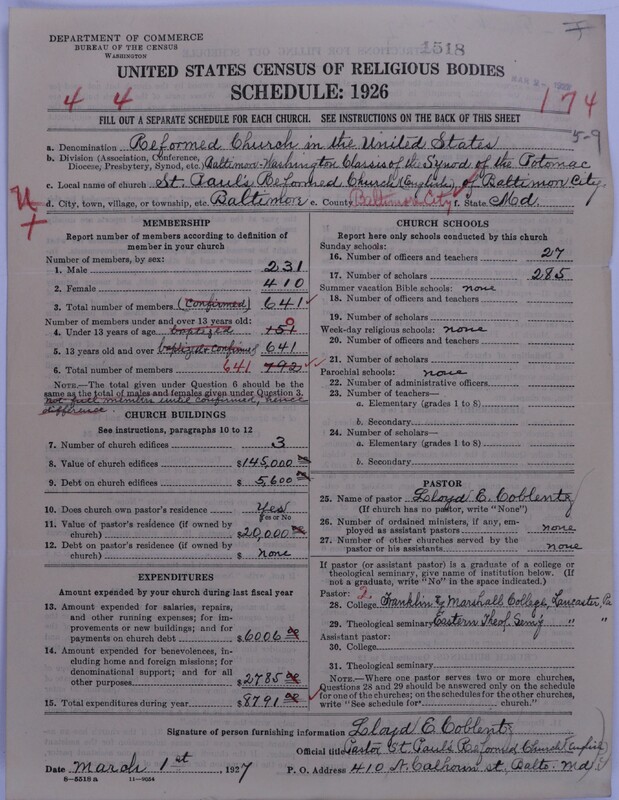 DEPARTMENT OF COMMERCE
BUREAU OF THE CENSUS
WASHINGTON
1518
UNITED STATES CENSUS OF RELIGIOUS BODIES
SCHEDULE: 1926
4 4
174
FILL OUT A SEPARATE SCHEDULE FOR EACH CHURCH. SEE INSTRUCTIONS ON THE BACK OF THIS SHEET
5-9
a. Denomination Reformed Church in the United States
b. Division (Association, Conference, Diocese, Presbytery, Synod, etc.) Baltimore-Washington Classis of the Synod of the Potomac
c. Local name of church St. Paul's Reformed Church (English) of Baltimore City
d. City, town, village, or township, etc. Baltimore e. County Baltimore City f. State Md.
MEMBERSHIP
Report number of members according to definition of member in your church
Number of members, by sex:
1. Male 231
2. Female 410
3. Total number of members (Confirmed) 641
Number of members under and over 13 years old:
4. Under 13 years of age baptized 151 0
5. 13 years old and over baptized & confirmed 641
6. Total number of members 641 792
NOTE.—The total given under Question 6 should be the same as the total of males and females given under Question 3.
not full members until confirmed, hence difference.
CHURCH BUILDINGS
See instructions, paragraphs 10 to 12
7. Number of church edifices 3
8. Value of church edifices $145,000 00
9. Debt on church edifices $5,600 00
10. Does church own pastor's residence Yes
Yes or No
11. Value of pastor's residence (if owned by church) $20,000 00
12. Debt on pastor's residence (if owned by church) $ none
EXPENDITURES
Amount expended by your church during last fiscal year
13. Amount expended for salaries, repairs, and other running expenses; for improvements or new buildings; and for payments on church debt $6006 00
14. Amount expended for benevolences, including home and foreign missions; for denominational support; and for all other purposes $2785 00
15. Total expenditures during year $8791 00
CHURCH SCHOOLS
Report here only schools conducted by this church
Sunday schools:
16. Number of officers and teachers 27
17. Number of scholars 285
Summer vacation Bible schools: none
18. Number of officers and teachers
19. Number of scholars
Week-day religious schools: none
20. Number of officers and teachers
21. Number of scholars
Parochial schools: none
22. Number of administrative officers
23. Number of teachers—
a. Elementary (grades 1 to 8)
b. Secondary
24. Number of scholars—
a. Elementary (grades 1 to 8)
b. Secondary
PASTOR
25. Name of pastor Lloyd E. Coblentz
(If church has no pastor, write "None")
26. Number of ordained ministers, if any, employed as assistant pastors none
27. Number of other churches served by the pastor or his assistants none
If pastor (or assistant pastor) is a graduate of a college or theological seminary, give name of institution below. (If not a graduate, write "No" in the space indicated.)
Pastor: 2
28. College Franklin & Marshall College, Lancaster, Pa
29. Theological seminary Eastern Theol. Semy " "
Assistant pastor:
30. College
31. Theological seminary
NOTE.—Where one pastor serves two or more churches, Questions 28 and 29 should be answered only on the schedule for one of the churches; on the schedules for the other churches, write "See schedule for church."
Signature of person furnishing information Lloyd E. Coblentz
Official title Pastor St. Paul's Reformed Church (English)
Date March 1st, 1927 P. O. Address 410 N. Calhoun st, Balto. Md
8-5518 a 11-9054